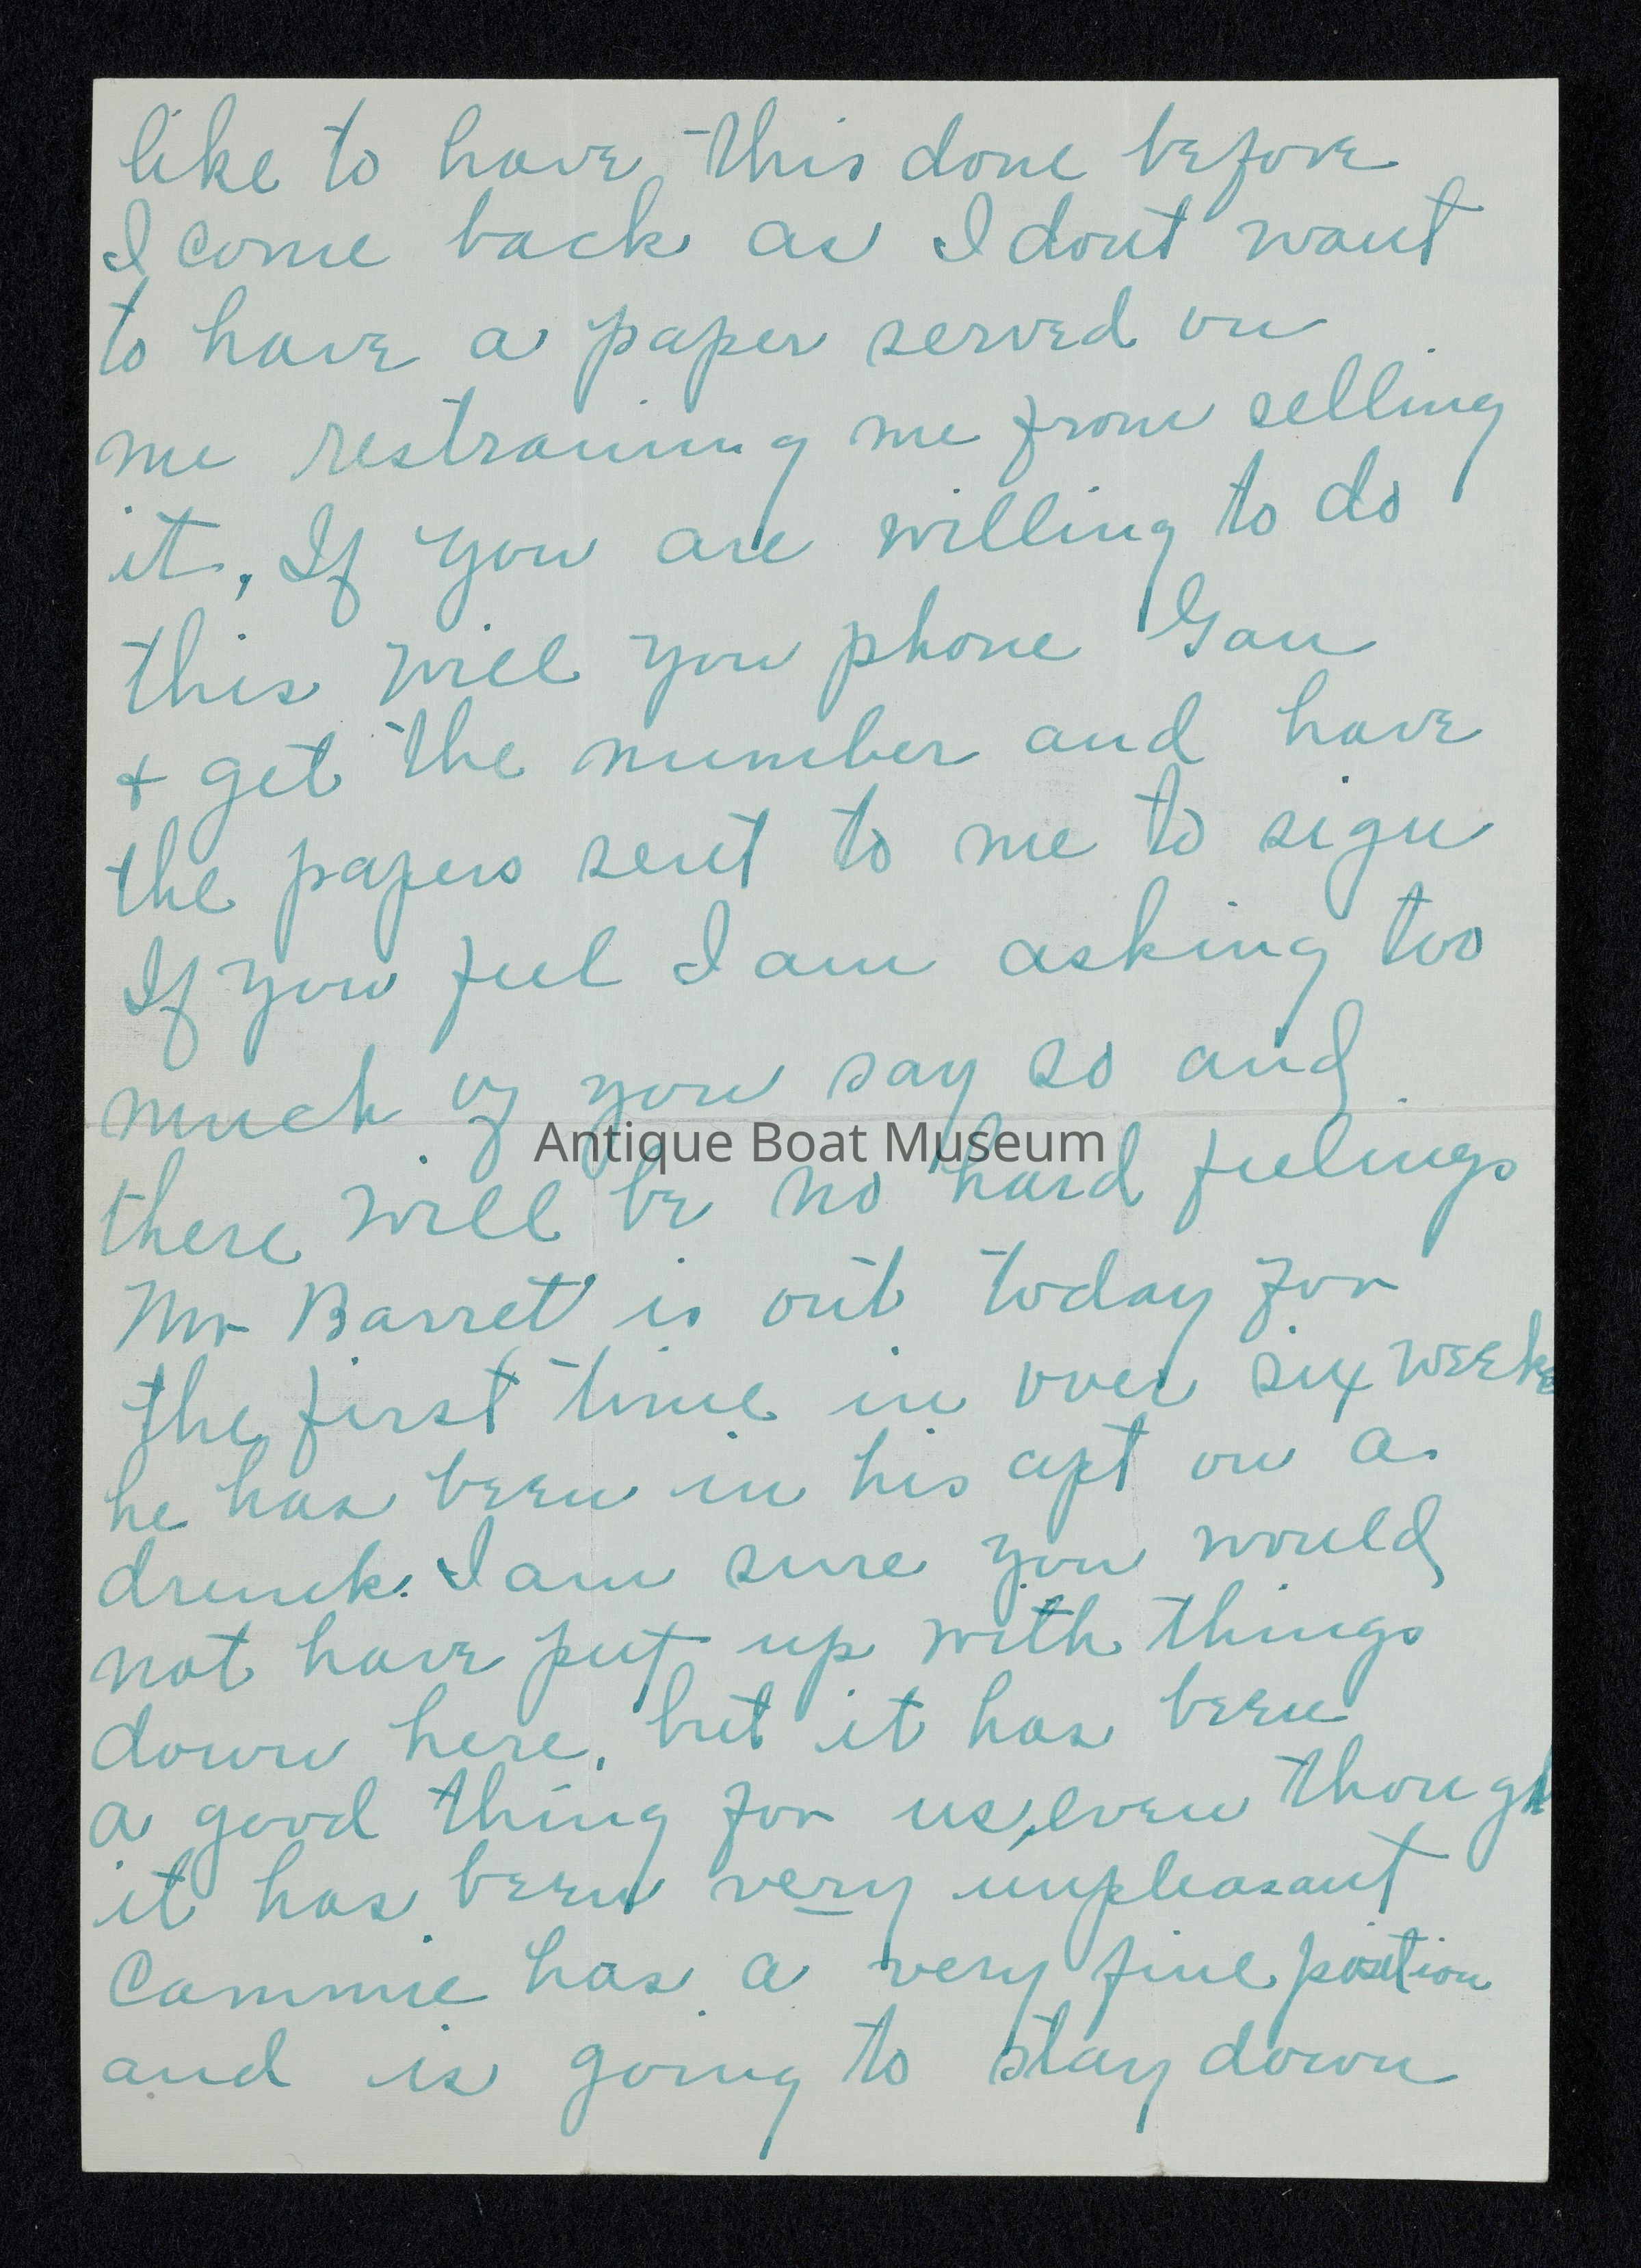 like to have this done before
I come back as I dont want
to have a paper served on
me restraining me from selling
it, If you are willing to do
this will you phone Gau
+ get the number and have
the papers sent to me to sign
If you feel I am asking too
much of you say so and
Antique Boat Museum
there will be no hard feelings
Mr Barret is out today for
the first time in over six weeks
he has been in his apt on a
drunk. I am sure you would
not have put up with things
down here, but it has been
a good thing for us, even though
it has been very unpleasant
Cammie has a very fine position
and is going to stay down